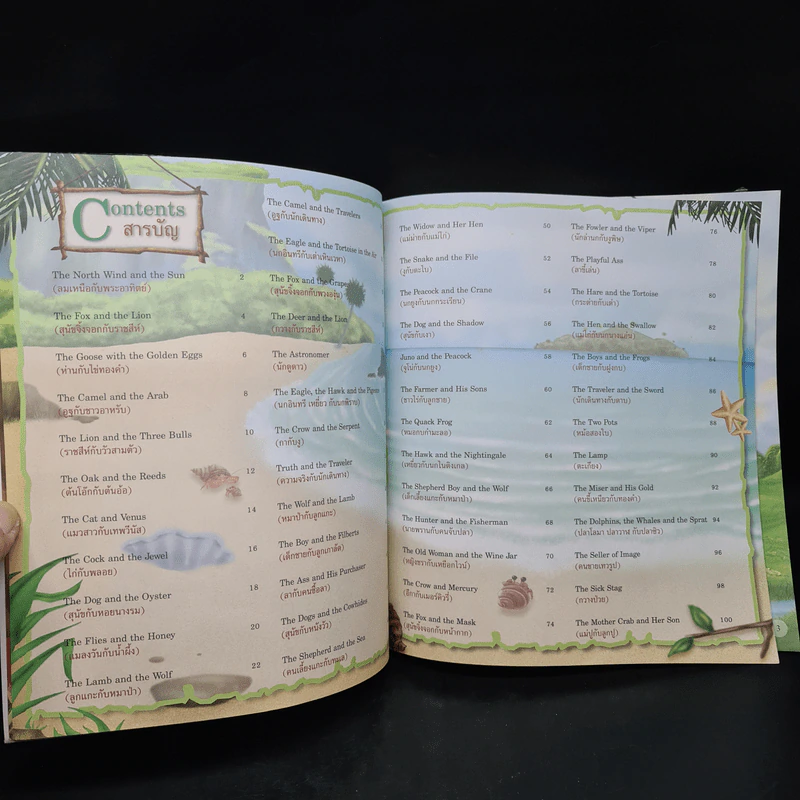 Contents
สารบัญ
The North Wind and the Sun 2
(ลมเหนือกับพระอาทิตย์)
The Fox and the Lion 4
(สุนัขจิ้งจอกกับราชสีห์)
The Goose with the Golden Eggs 6
(ห่านกับไข่ทองคำ)
The Camel and the Arab 8
(อูฐกับชาวอาหรับ)
The Lion and the Three Bulls 10
(ราชสีห์กับวัวสามตัว)
The Oak and the Reeds 12
(ต้นโอ๊กกับต้นอ้อ)
The Cat and Venus 14
(แมวสาวกับเทพวีนัส)
The Cock and the Jewel 16
(ไก่กับพลอย)
The Dog and the Oyster 18
(สุนัขกับหอยนางรม)
The Flies and the Honey 20
(แมลงวันกับน้ำผึ้ง)
The Lamb and the Wolf 22
(ลูกแกะกับหมาป่า)
The Camel and the Travelers
(อูฐกับนักเดินทาง)
The Eagle and the Tortoise in the Air
(นกอินทรีกับเต่าเดินเวหา)
The Fox and the Grapes
(สุนัขจิ้งจอกกับพวงองุ่น)
The Deer and the Lion
(กวางกับราชสีห์)
The Astronomer
(นักดูดาว)
The Eagle, the Hawk and the Pigeons
(นกอินทรี เหยี่ยว กับนกพิราบ)
The Crow and the Serpent
(กากับงู)
Truth and the Traveler
(ความจริงกับนักเดินทาง)
The Wolf and the Lamb
(หมาป่ากับลูกแกะ)
The Boy and the Filberts
(เด็กชายกับลูกเกาลัด)
The Ass and His Purchaser
(ลากับคนซื้อลา)
The Dogs and the Cowhides
(สุนัขกับหนังวัว)
The Shepherd and the Sea
(คนเลี้ยงแกะกับทะเล)
The Widow and Her Hen 50
(แม่ม่ายกับแม่ไก่)
The Snake and the File 52
(งูกับตะไบ)
The Peacock and the Crane 54
(นกยูงกับนกกระเรียน)
The Dog and the Shadow 56
(สุนัขกับเงา)
Juno and the Peacock 58
(จูโนกับนกยูง)
The Farmer and His Sons 60
(ชาวไร่กับลูกชาย)
The Quack Frog 62
(หมอกบกำมะลอ)
The Hawk and the Nightingale 64
(เหยี่ยวกับนกไนติงเกล)
The Shepherd Boy and the Wolf 66
(เด็กเลี้ยงแกะกับหมาป่า)
The Hunter and the Fisherman 68
(นายพรานกับคนจับปลา)
The Old Woman and the Wine Jar 70
(หญิงชรากับเหยือกไวน์)
The Crow and Mercury 72
(อีกากับเมอร์คิวรี่)
The Fox and the Mask 74
(สุนัขจิ้งจอกกับหน้ากาก)
The Fowler and the Viper 76
(นักล่านกกับงูพิษ)
The Playful Ass 78
(ลาขี้เล่น)
The Hare and the Tortoise 80
(กระต่ายกับเต่า)
The Hen and the Swallow 82
(แม่ไก่กับนกนางแอ่น)
The Boys and the Frogs 84
(เด็กชายกับฝูงกบ)
The Traveler and the Sword 86
(นักเดินทางกับดาบ)
The Two Pots 88
(หม้อสองใบ)
The Lamp 90
(ตะเกียง)
The Miser and His Gold 92
(คนขี้เหนียวกับทองคำ)
The Dolphins, the Whales and the Sprat 94
(ปลาโลมา ปลาวาฬ กับปลาซิว)
The Seller of Image 96
(คนขายเทวรูป)
The Sick Stag 98
(กวางป่วย)
The Mother Crab and Her Son 100
(แม่ปูกับลูกปู)
3